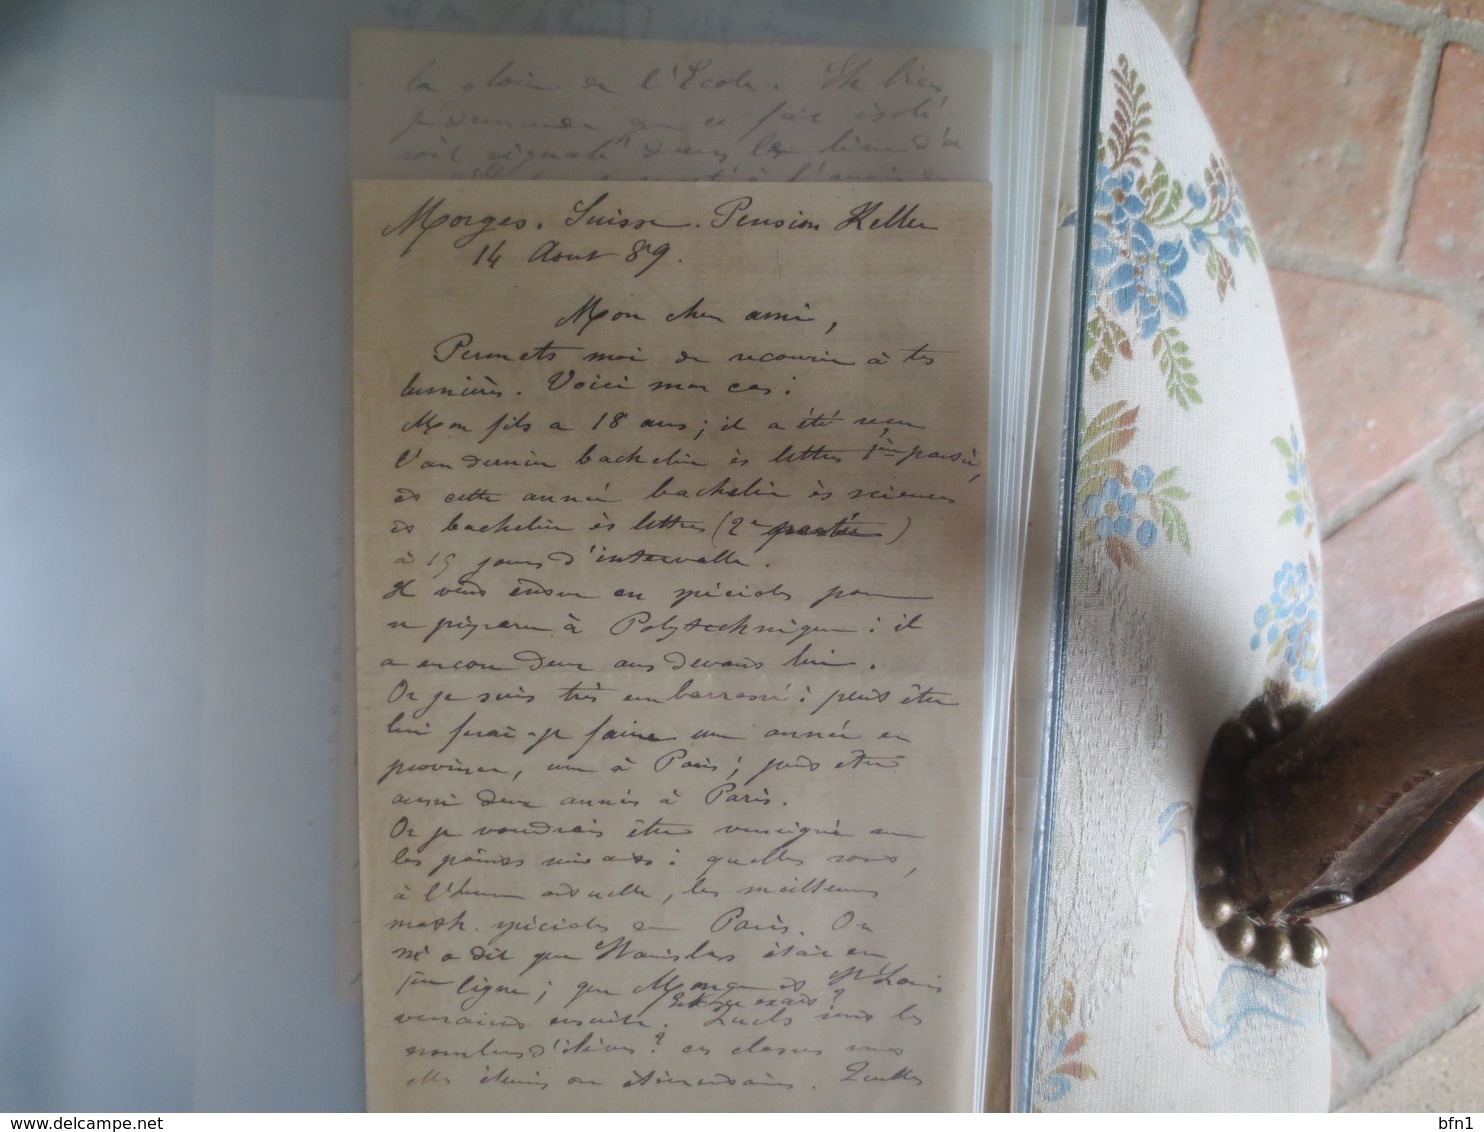 la gloire de l'Ecole. Eh bien,
que ce fait isolé
soit signalé dans le
Morges. Suisse. Pension Keller
14 Aout 89.
Mon cher ami,
Permets moi de recourir à tes
lumières. Voici mon cas :
Mon fils a 18 ans ; il a été reçu
l'an dernier bachelier ès lettres 1ère partie,
et cette année bachelier ès sciences
et bachelier ès lettres (2e partie)
à 15 jours d'intervalle.
Il vient entrer en spéciales pour
se préparer à Polytechnique : il
a encore deux ans devant lui.
Or je suis très embarrassé : peut être
lui ferai-je faire une année en
province, une à Paris ; peut être
aussi deux années à Paris.
Or je voudrais être renseigné sur
les points suivants : quelles sont,
à l'heure actuelle, les meilleures
math. spéciales de Paris. On
m'a dit que Stanislas était en
1ère ligne ; que Monge et St Louis
venaient ensuite. Est-ce exact ? Quels sont les
nombres d'élèves ? ces classes sont
elles . Quelles
bfn1